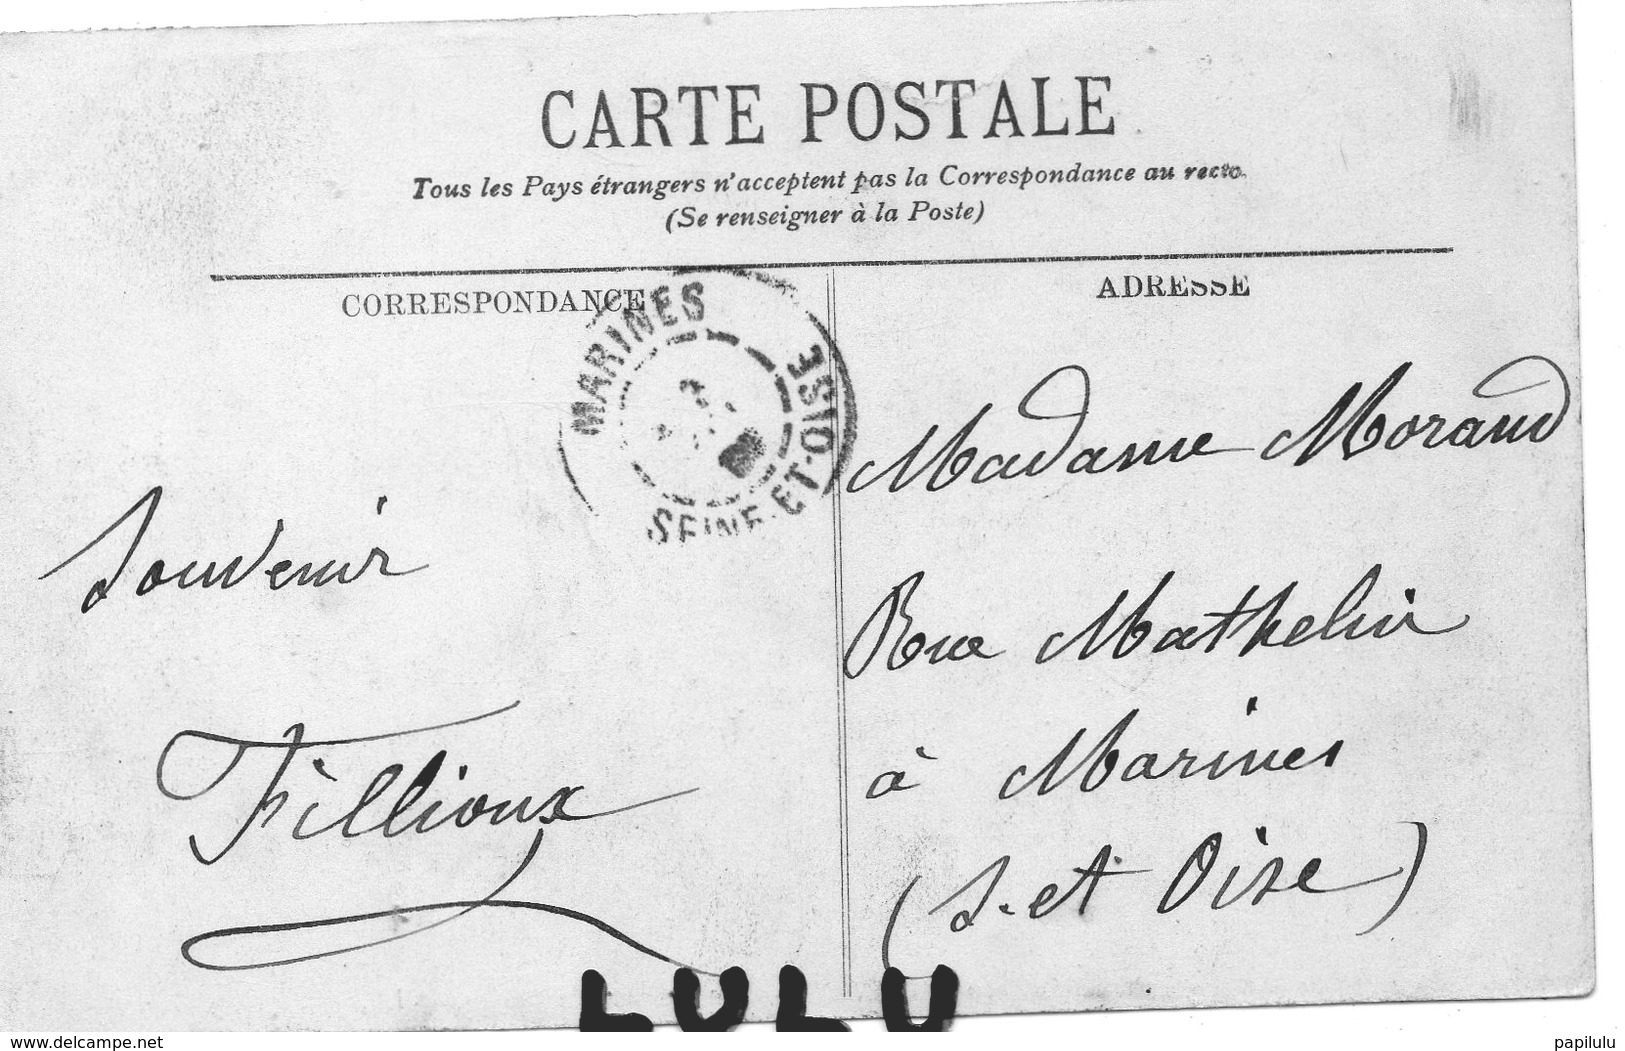 CARTE POSTALE
Tous les Pays étrangers n'acceptent pas la Correspondance au recto.
(Se renseigner à la Poste)
CORRESPONDANCE
ADRESSE
MARINES
SEINE-ET-OISE
Souvenir
Fillioux
Madame Morand
Rue Mathelin
à Marines
(S. et Oise)
LULU
www.delcampe.net
papilulu